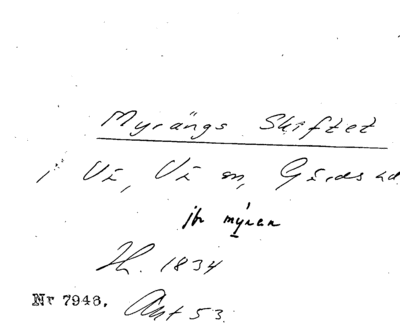 Myrängs Skiftet
i Vi, Vi sn, Gärds hd
jfr mýran
H. 1834
Nr 7948. Ant 53.